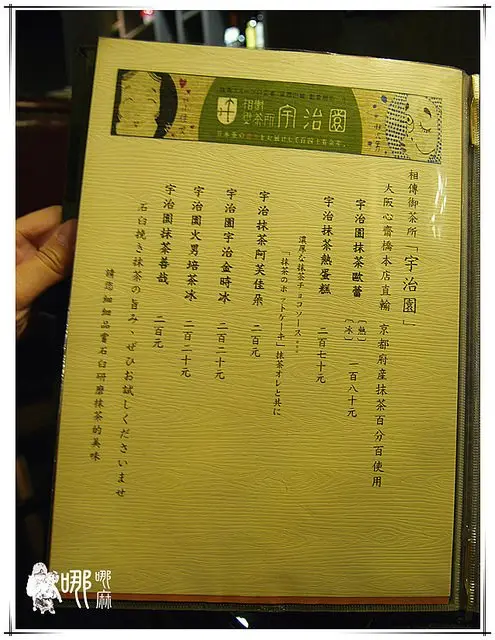 相傳
御茶所
宇治園
相傳御茶所「宇治園」
大阪心齋橋本店直輸 京都府産抹茶百分百使用
宇治園抹茶歐蕾 〔熱〕〔冰〕 一百八十元
宇治抹茶熱蛋糕 二百七十元
濃厚な抹茶チョコソース
「抹茶のホットケーキ」抹茶オレと共に
宇治抹茶阿芙佳朵 二百元
宇治園宇治金時冰 二百二十元
宇治園火男焙茶冰 二百二十元
宇治園抹茶善哉 二百元
石臼挽き抹茶の旨み、ぜひお試しくださいませ
請您細細品嘗石臼研磨抹茶的美味
哪哪麻